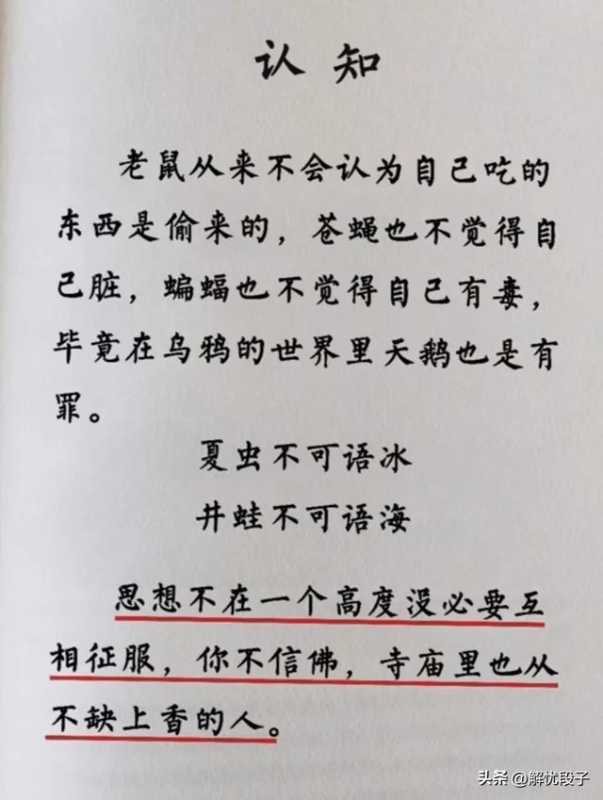 认知
老鼠从来不会认为自己吃的
东西是偷来的，苍蝇也不觉得自
己脏，蝙蝠也不觉得自己有毒，
毕竟在乌鸦的世界里天鹅也是有
罪。
夏虫不可语冰
井蛙不可语海
思想不在一个高度没必要互
相征服，你不信佛，寺庙里也从
不缺上香的人。
头条 @解忧段子